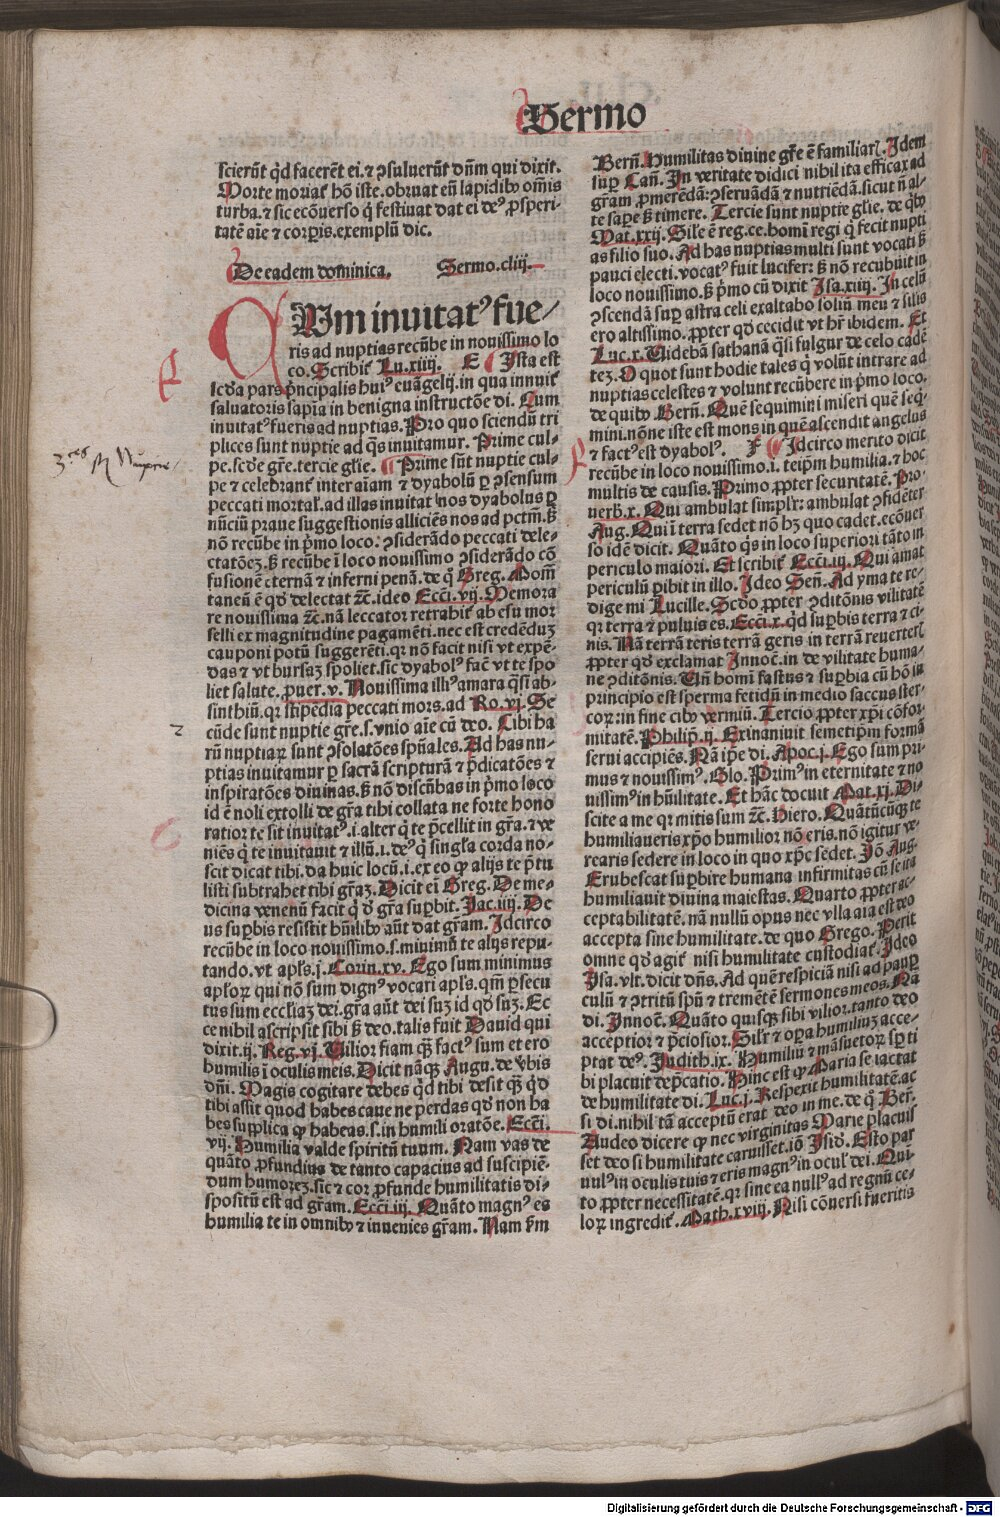 Sermo
scierūt qd̓ facerēt ei. ⁊ ꝯsuluerūt dn̄m qui dixit.
Morte moriat̉ hō iste. obruat eū lapidibꝰ om̄is
turba. ⁊ sic ecōuerso q̓ festiuat dat ei deꝰ ꝓsperi-
tatē aīe ⁊ corꝑis. exemplū dic.
De eadem dominica. Sermo. cliij.
CUm inuitatꝰ fue/
ris ad nuptias recūbe in nouissimo lo
co. Scribit̉ Lu. xiiij. E Ista est
scd̓a pars pͥncipalis huiꝰ euāgelij. in qua innuit̉
saluatoris sapīa in benigna instructōe di. Cum
inuitatꝰ fueris ad nuptias. Pro quo sciendū tri
plices sunt nuptie ad q̄s inuitamur. Prime cul-
pe. scd̓e gr̄e. tercie glīe. Prime sūt nuptie cul-
pe ⁊ celebrant̉ inter aīam ⁊ dyabolū ꝑ ꝯsensum
peccati mortal̉. ad illas inuitat nos dyabolus ꝑ
nūciū praue suggestionis alliciēs nos ad pctm̄. s̄
nō recūbe in pͥmo loco: ꝯsiderādo peccati dele-
ctatōeꝫ. s̄ recūbe ī loco nouissimo ꝯsiderādo cō
fusionē eternā ⁊ inferni penā. de q̊ Greg. Momē
taneū ē qd̓ delectat ⁊c̄. ideo Ecci. vij. Memora
re nouissima ⁊c̄. nā leccator retrahit̉ ab esu mor
selli ex magnitudine pagamēti. nec est credēduꝫ
cauponi potū suggerēti. qr nō facit nisi vt expē-
das ⁊ vt bursaꝫ spoliet. sic dyabolꝰ fac̄ vt te spo
liet salute. puer. v. Nouissima illiꝰ amara q̄si ab-
sinthiū. qr stipēdia peccati mors. ad Ro. vj. Se
cūde sunt nuptie gr̄e. s. vnio aīe cū deo. Cibi ha
rū nuptiaꝝ sunt ꝯsolatōes spūales. Ad has nu-
ptias inuitamur ꝑ sacrā scripturā ⁊ p̄dicatōes ⁊
inspiratōes diuinas. s̄ nō discūbas in pͥmo loco
id ē noli extolli de gr̄a tibi collata ne forte hono
ratior te sit inuitatꝰ. i. alter q̓ te p̄cellit in gr̄a. ⁊ ve
niēs q̓ te inuitauit ⁊ illū. i. deꝰ q̓ singl̓a corda no-
scit dicat tibi. da huic locū. i. ex eo q̓ alijs te p̄tu
listi subtrahet tibi gr̄aꝫ. Dicit eī Greg. De me-
dicina venenū facit q̓ ꝺ gr̄a suꝑbit. Jac. iiij. De
us suꝑbis resistit hūilibꝰ aūt dat gr̄am. Idcirco
recūbe in loco nouissimo. s. minimū te alijs repu-
tando. vt apl̓s. j. Corin. xv. Ego sum minimus
apl̓oꝝ qui nō sum dignꝰ vocari apl̓s. qm̄ ꝑsecu
tus sum eccl̓iaꝫ dei. gr̄a aūt dei suꝫ id qd̓ suꝫ. Ec
ce nihil ascripsit sibi s̄ deo. talis fuit Dauid qui
dixit. ij. Reg. vj. Vilior fiam q̄ꝫ factꝰ sum et ero
humilis ī oculis meis. Dicit nāqꝫ Augu. de v̓bis
dn̄i. Magis cogitare debes qd̓ tibi desit q̄ꝫ qd̓
tibi assit quod habes caue ne perdas qd̓ non ha
bes supplica ꝙ habeas. s. in humili oratōe. Ecci.
vij. Humilia valde spiritū tuum. Nam vas de
quāto ꝓfundius de tanto capacius ad suscipiē-
dum humoreꝫ. sic ⁊ cor ꝓfunde humilitatis di-
spositū est ad gr̄am. Ecci. iij. Quāto magnꝰ es
humilia te in omnibꝰ ⁊ inuenies gr̄am. Nam s̄m
Bern̄. Humilitas diuine gr̄e ē familiaꝝ. Idem
suꝑ Can̄. In veritate didici nihil ita efficax ad
gr̄am ꝓmerēdā: ꝯseruādā ⁊ nutriēdā. sicut n̄ al-
te saꝑe s̄ timere. Tercie sunt nuptie gl̓ie. de q̓bꝰ
Mat. xxij. Sile ē reg. ce. homī regi q̓ fecit nupti
as filio suo. Ad has nuptias multi sunt vocati s̄
pauci electi. vocatꝰ fuit lucifer: s̄ nō recubuit in
loco nouissimo. s̄ pͥmo cū dixit Isa. xiiij. In celū
ꝯscendā suꝑ astra celi exaltabo soliū meū ⁊ silis
ero altissimo. ꝓpter qd̓ cecidit vt hr̄ ibidem. Et
Luc. x. Videbā sathanā q̄si fulgur de celo cadē
teꝫ. O quot sunt hodie tales q̓ volūt intrare ad
nuptias celestes ⁊ volunt recūbere in pͥmo loco.
de quibꝰ Bern̄. Quē sequimini miseri quē seq̓-
mini. nōne iste est mons in quē ascendit angelus
⁊ factꝰ est dyabolꝰ. F Idcirco merito dicit
recūbe in loco nouissimo. i. teipm̄ humilia. ⁊ hoc
multis de causis. Primo ꝓpter securitatē. Pro-
uerb. x. Qui ambulat simpl̓r: ambulat ꝯfidēter
Aug. Qui ī terra sedet nō hꝫ quo cadet. ecōuer
so idē dicit. Quāto q̓s in loco superiori tāto in
periculo maiori. Et scribit̉ Ecci. iij. Qui amat
periculū ꝑibit in illo. Ideo Sen̄. Ad yma te re-
dige mi Lucille. Scd̓o ꝓpter ꝯditōnis vilitatē
qr terra ⁊ puluis es. Ecci. x. qd̓ suꝑbis terra ⁊ ci-
nis. Nā terrā teris terrā geris in terrā reuerteri
ꝓpter qd̓ exclamat Innoc̄. in de vilitate huma-
ne ꝯditōnis. Vn̄ homī fastus ⁊ suꝑbia cū hō in
principio est sperma fetidū in medio saccus ster-
coꝝ: in fine cibꝰ vermiū. Tercio ꝓpter xp̄i cōfor-
mitatē. Philip̄. ij. Exinaniuit semetipm̄ formā
serui accipiēs. Nā ip̄e di. Apoc. j. Ego sum pri-
mus ⁊ nouissimꝰ. Glo. Primꝰ in eternitate ⁊ no
uissimꝰ in hūilitate. Et hāc docuit Mat. xj. Di-
scite a me qr mitis sum ⁊c̄. Hiero. Quātūcūqꝫ te
humiliaueris xp̄o humilior nō eris. nō igitur ve-
rearis sedere in loco in quo xp̄c sedet. Iō Aug.
Erubescat suꝑbire humana infirmitas cū se ita
humiliauit diuina maiestas. Quarto ꝓpter ac-
ceptabilitatē. nā nullū opus nec vlla aīa est deo
accepta sine humilitate. de quo Grego. Perit
omne qd̓ agit̉ nisi humilitate custodiat̉. Ideo
Isa. vlt. dicit dn̄s. Ad quē respiciā nisi ad pauꝑ
culū ⁊ ꝯtritū spū ⁊ tremētē sermones meos. Nā
di. Innoc̄. Quāto quisqꝫ sibi vilior. tanto deo
acceptior ⁊ p̄ciosior. Sil̓r ⁊ oꝑa humiliuꝫ acce-
ptat deꝰ. Judith. ix. Humiliū ⁊ māsuetoꝝ sꝑ ti
bi placuit dep̄catio. Hinc est ꝙ Maria se iactat
de humilitate di. Luc. j. Respexit humilitatē. ac
si di. nihil tā acceptū erat deo in me. de q̊ Ber.
Audeo dicere ꝙ nec virginitas Marie placuis
set deo si humilitate caruisset. iō Isid̓. Esto par
uulꝰ in oculis tuis ⁊ eris magnꝰ in ocul̓ dei. Qui-
to ꝓpter necessitatē. qr sine ea nullꝰ ad regnū ce-
loꝝ ingredit̉. Math. xviij. Nisi cōuersi fueritis
2
Digitalisierung gefördert durch die Deutsche Forschungsgemeinschaft - DFG